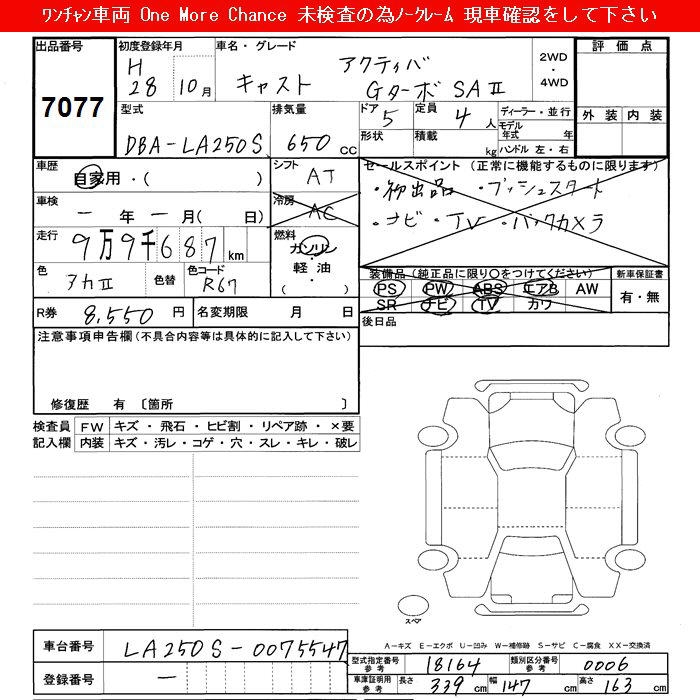 ワンチャン車両 One More Chance 未検査の為ノークレーム 現車確認をして下さい
出品番号 初度登録年月 車名・グレード 評価点
7077 H 28 10月 キャスト アクティバ Gターボ SAⅡ 2WD・4WD
型式 排気量 ドア 定員 ディーラー・並行 外装 内装
DBA-LA250S 650cc 5 4人 モデル年式 年
形状 積載 kg ハンドル 左・右
車歴 自家用・( ) シフト AT セールスポイント (正常に機能するものに限ります)
・初出品 ・プッシュスタート
車検 ー年ー月( 日) 冷房 AC ・ナビ・TV・バックカメラ
走行 9万9千687km 燃料 ガソリン・軽油・( )
色 アカⅡ 色替 色コード R67 装備品 (純正品に限り○をつけてください) 新車保証書
PS PW ABS エアB AW 有・無
R券 8,550円 名変期限 月 日 SR ナビ TV カワ
注意事項申告欄(不具合内容等は具体的に記入して下さい) 後日品
修復歴 有 〔箇所 〕
検査員 FW キズ・飛石・ヒビ割・リペア跡・×要
記入欄 内装 キズ・汚レ・コゲ・穴・スレ・キレ・破レ
スペア
A－キズ E－エクボ U－凹み W－補修跡 S－サビ C－腐食 XX－交換済
車台番号 LA250S-0075547 型式指定番号参考 18164 類別区分番号参考 0006
登録番号 ー 車庫証明用参考 長さ 339cm 幅 147cm 高さ 163cm